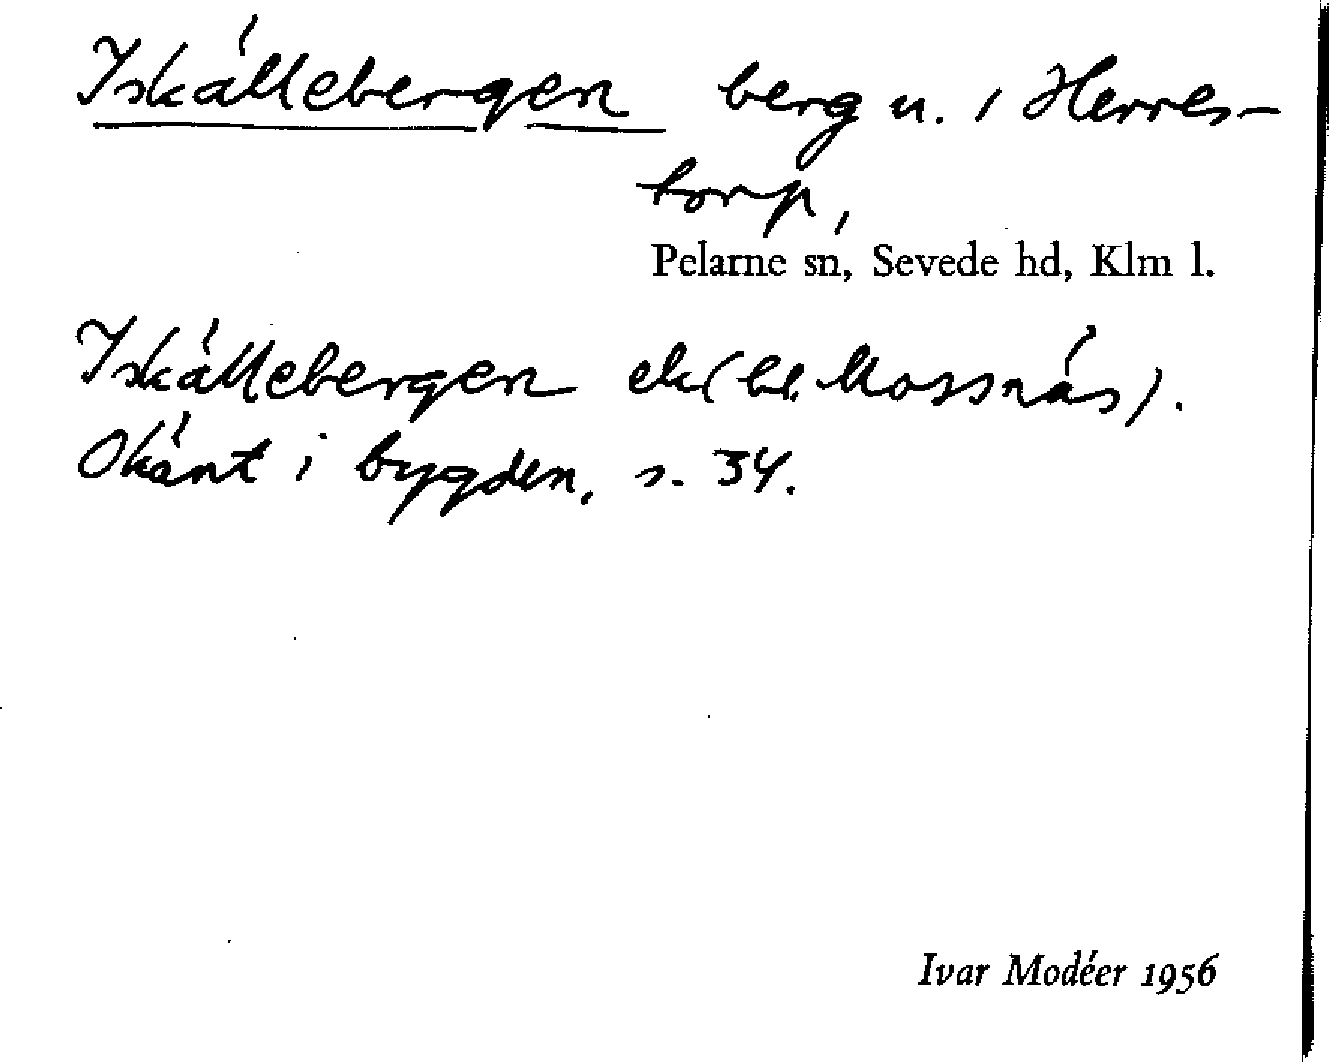 Iskällebergen berg n. i Herres-
torp,
Pelarne sn, Sevede hd, Klm l.
Iskällebergen ek (bl. Mossnäs).
Okänt i bygden. s. 34.
Ivar Modéer 1956